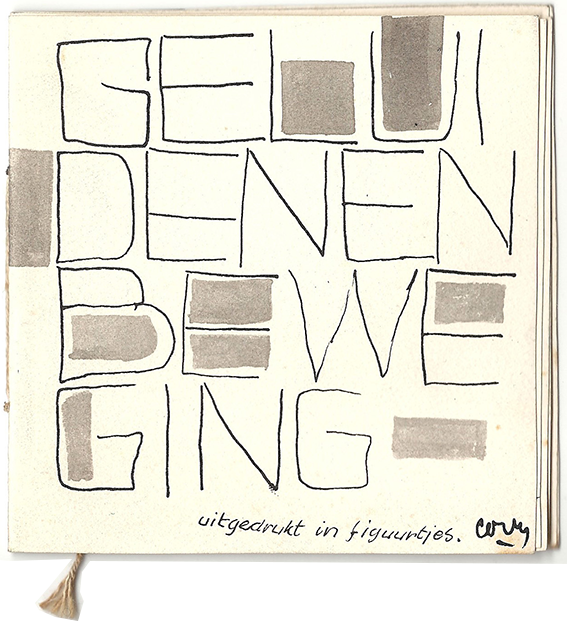 GELUI
DENEN
BEWE
GING
uitgedrukt in figuurtjes. corry